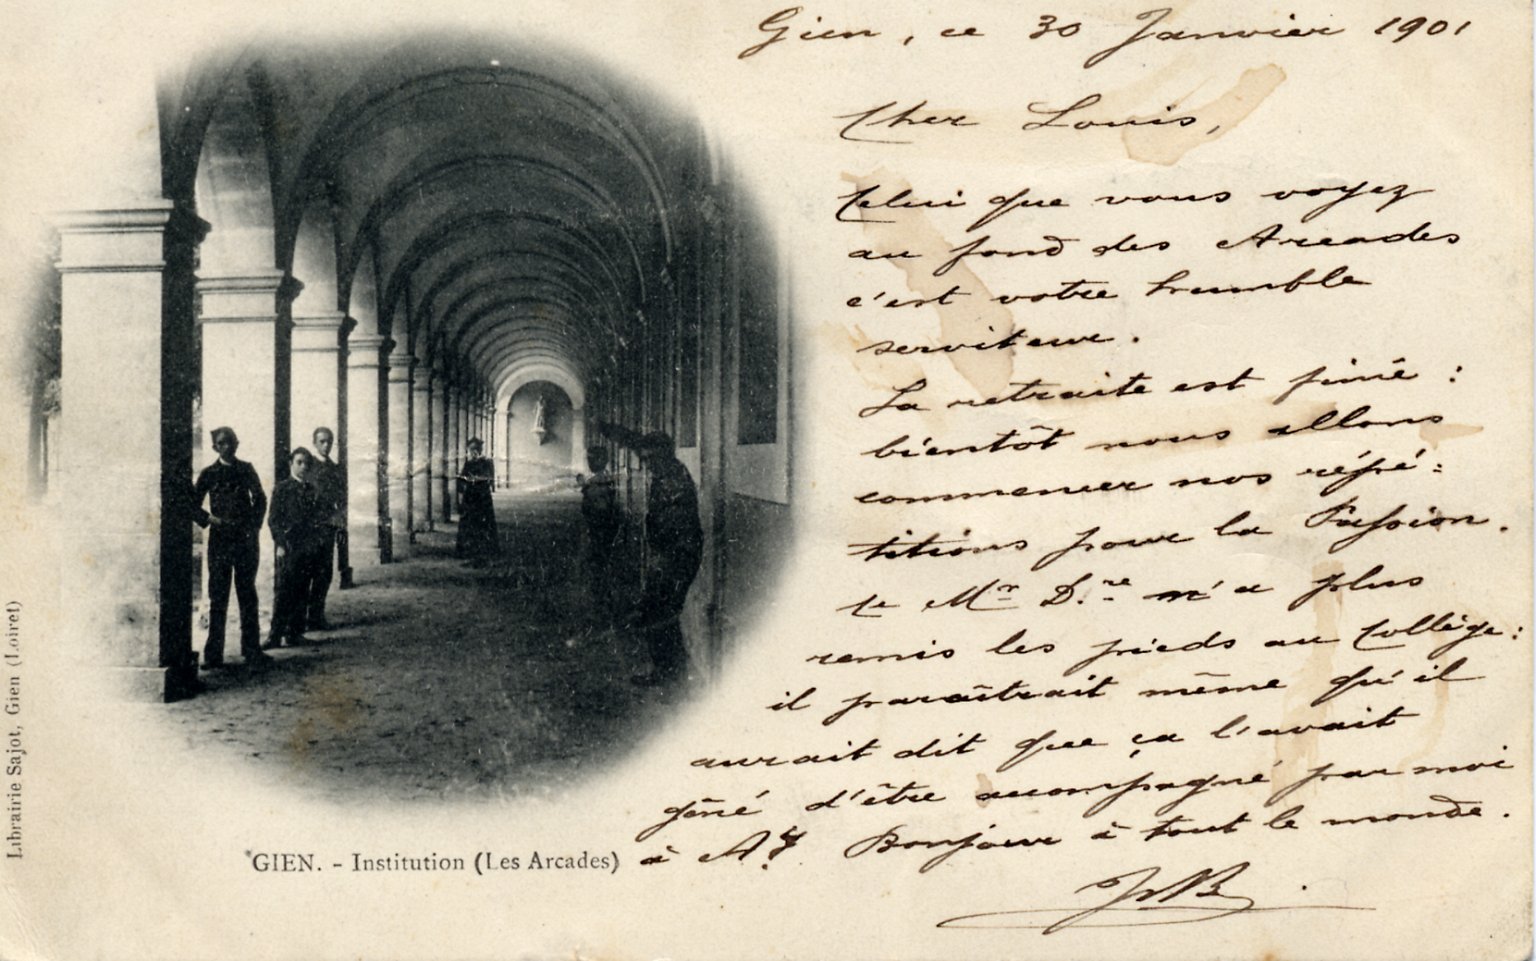 Gien, ce 30 Janvier 1901
Cher Louis,
Celui que vous voyez
au fond des Arcades
c'est votre humble
serviteur.
La retraite est finie :
bientôt nous allons
commencer nos répé=
titions pour la Passion.
Le Mr D.re n'a plus
remis les pieds au Collège :
il paraîtrait même qu'il
aurait dit que ça l'avait
gêné d'être accompagné par moi
à Bonjour à tout le monde.
GIEN. - Institution (Les Arcades)
Librairie Sajot, Gien (Loiret)